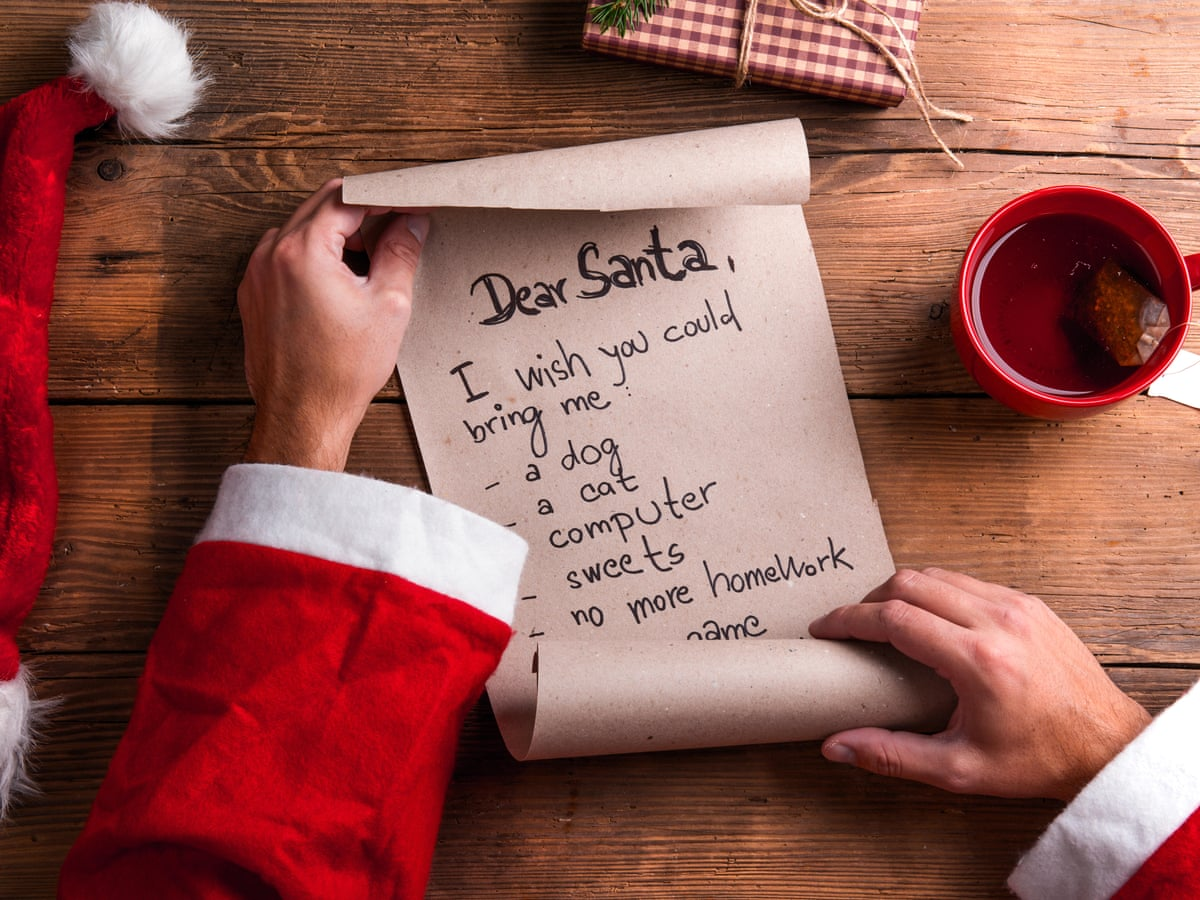 Dear Santa,
I wish you could
bring me:
- a dog
- a cat
computer
- sweets
- no more homework
name